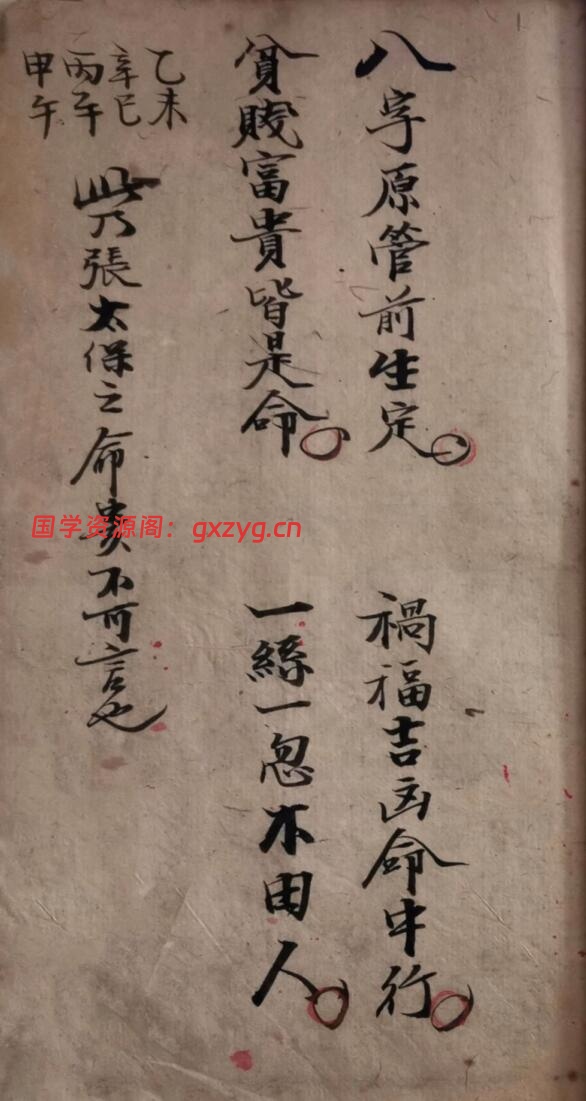 八字原管前生定 禍福吉凶命中行
貧賤富貴皆是命 一絲一忽不由人
乙未
辛巳
丙午
申午
此乃張太保之命貴不可言也
国学资源阁：gxzyg.cn